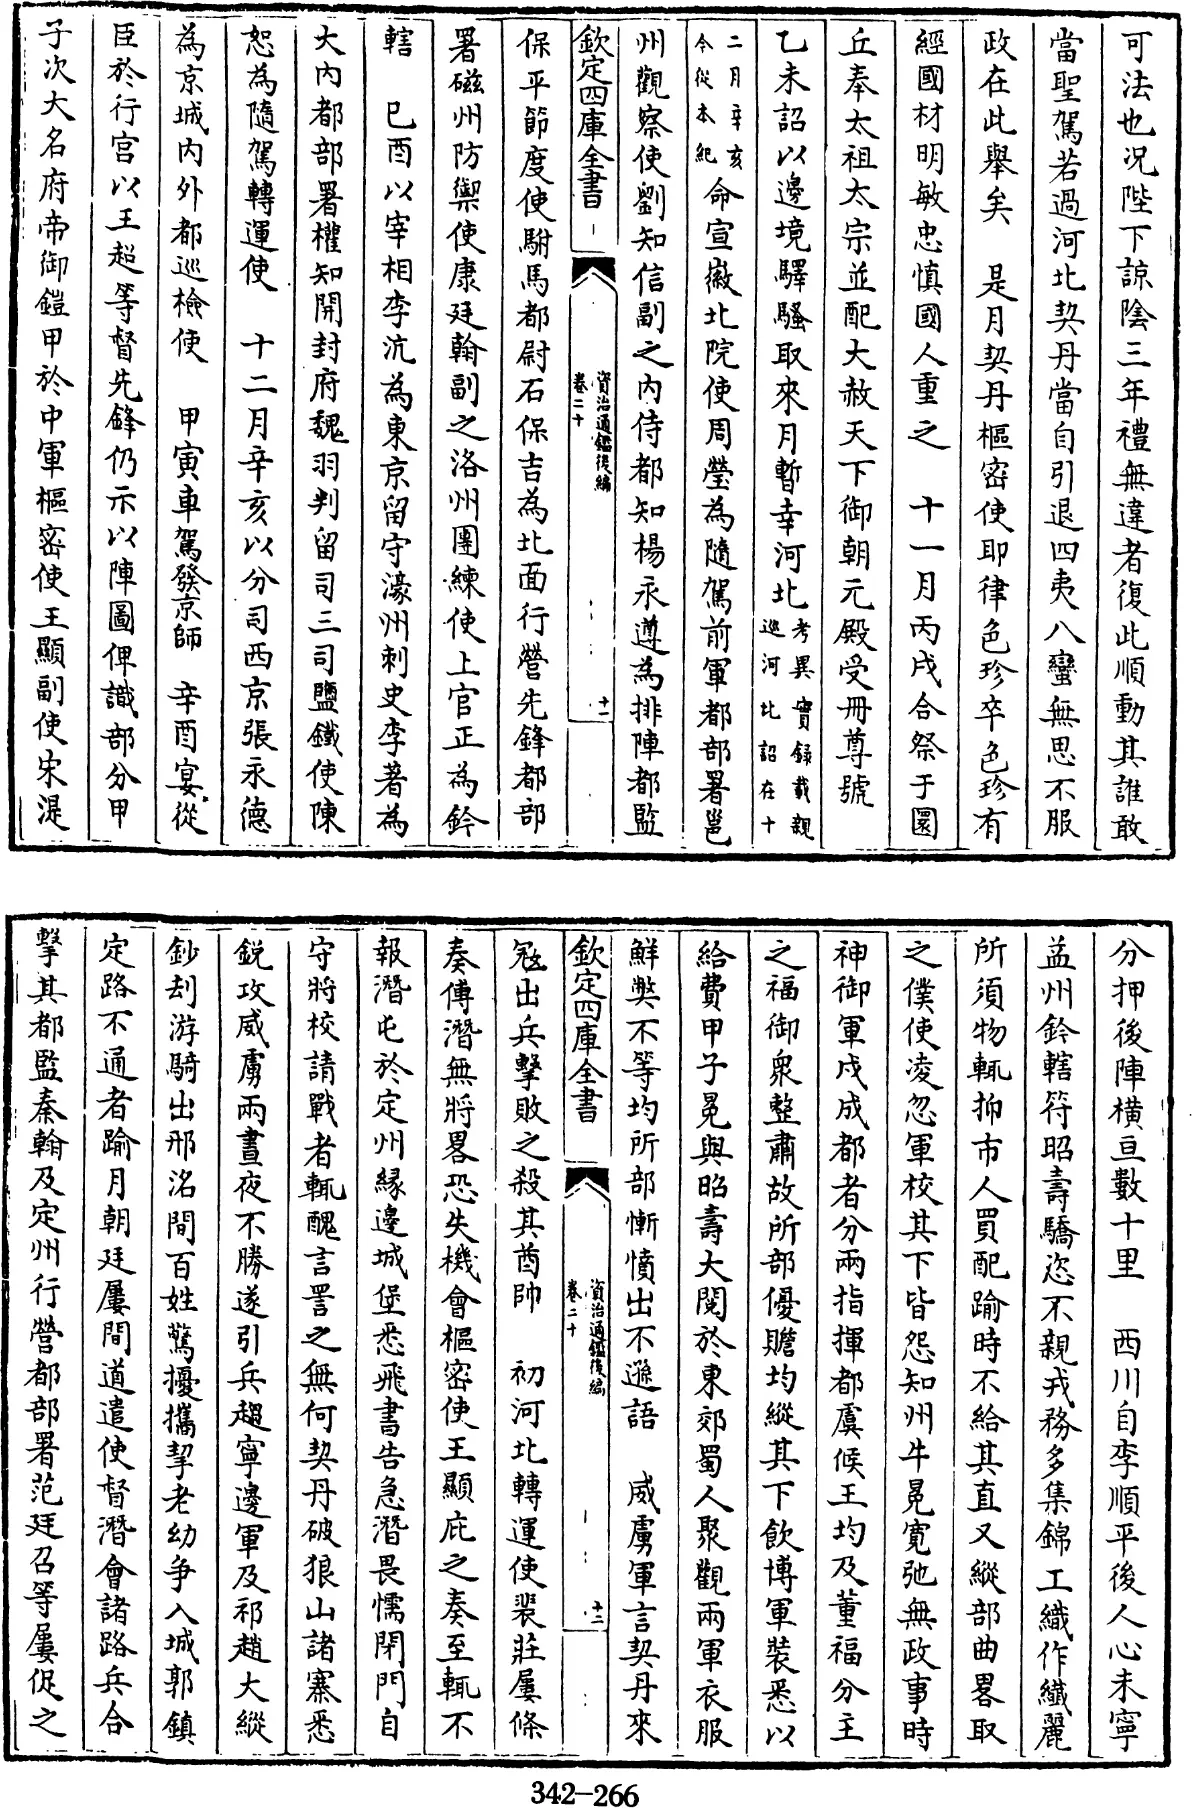 可法也况陛下諒陰三年禮無違者復此順動其誰敢
當聖駕若過河北契丹當自引退四夷八蠻無思不服
政在此舉矣　是月契丹樞密使耶律色珍卒色珍有
經國材明敏忠慎國人重之　十一月丙戌合祭于圜
丘奉太祖太宗並配大赦天下御朝元殿受冊尊號
乙未詔以邊境驛騷取來月暫幸河北考異實録載親
巡河北詔在十
二月辛亥
今從本紀命宣徽北院使周瑩為隨駕前軍都部署邕
州觀察使劉知信副之内侍都知楊永遵為排陣都監
欽定四庫全書
資治通鑑後編
卷二十
十一
保平節度使駙馬都尉石保吉為北面行營先鋒都部
署磁州防禦使康廷翰副之洺州團練使上官正為鈐
轄　已酉以宰相李沆為東京留守濠州刺史李著為
大内都部署權知開封府魏羽判留司三司鹽鐵使陳
恕為隨駕轉運使　十二月辛亥以分司西京張永德
為京城内外都巡檢使　甲寅車駕發京師　辛酉宴從
臣於行宮以王超等督先鋒仍示以陣圖俾識部分甲
子次大名府帝御鎧甲於中軍樞密使王顯副使宋湜
分押後陣横亘數十里　西川自李順平後人心未寧
益州鈐轄符昭壽驕恣不親戎務多集錦工織作纎麗
所須物輒抑市人買配踰時不給其直又縱部曲畧取
之僕使凌忽軍校其下皆怨知州牛冕寛弛無政事時
神御軍戍成都者分兩指揮都虞候王均及董福分主
之福御衆整肅故所部優贍均縱其下飲博軍裝悉以
給費甲子冕與昭壽大閱於東郊蜀人聚觀兩軍衣服
鮮獘不等均所部慚憤出不遜語　威虜軍言契丹來
欽定四庫全書
資治通鑑後編
卷二十
十二
宼出兵擊敗之殺其酋帥　初河北轉運使裴莊屢條
奏傅潛無將畧恐失機會樞密使王顯庇之奏至輒不
報潛屯於定州縁邊城堡悉飛書告急潛畏懦閉門自
守將校請戰者輒醜言詈之無何契丹破狼山諸寨悉
鋭攻威虜兩晝夜不勝遂引兵趨寧邊軍及祁趙大縱
鈔刦游騎出邢洺間百姓驚擾攜挈老幼争入城郭鎮
定路不通者踰月朝廷屢間道遣使督潛會諸路兵合
擊其都監秦翰及定州行營都部署范廷召等屢促之
342-266